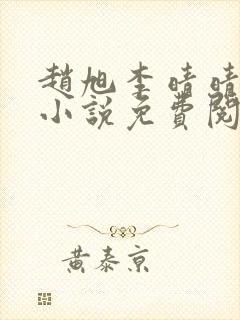 趙旭李晴晴
小說免費閱
黃泰京